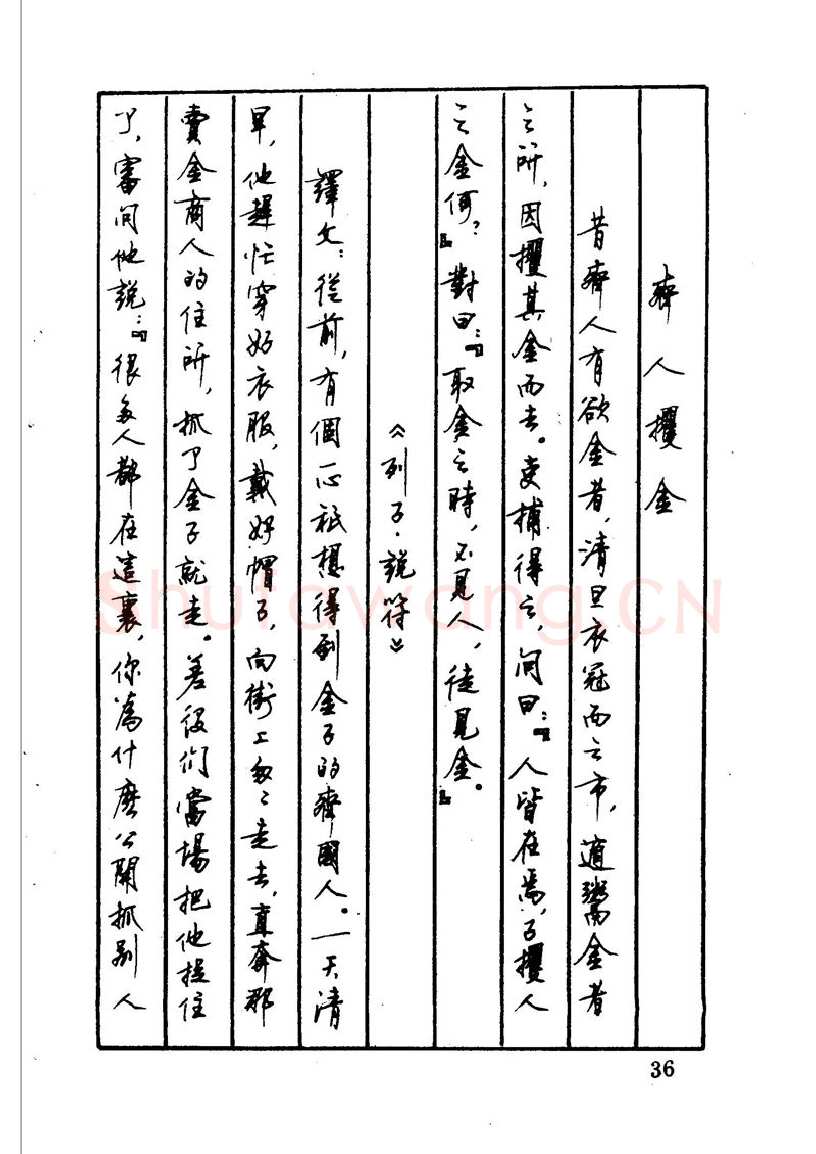 齊人攫金
昔齊人有欲金者，清旦衣冠而之市，適鬻金者
之所，因攫其金而去。吏捕得之，問曰：『人皆在焉，子攫人
之金何？』對曰：『取金之時，不見人，徒見金。』
《列子·說符》
譯文：從前，有個一心祇想得到金子的齊國人。一天清
早，他趕忙穿好衣服，戴好帽子，向街上匆匆走去，直奔那
賣金商人的住所，抓了金子就走。差役們當場把他捉住
了，審問他說：『很多人都在這裏，你為什麽公開抓别人
36
Shufawang.CN